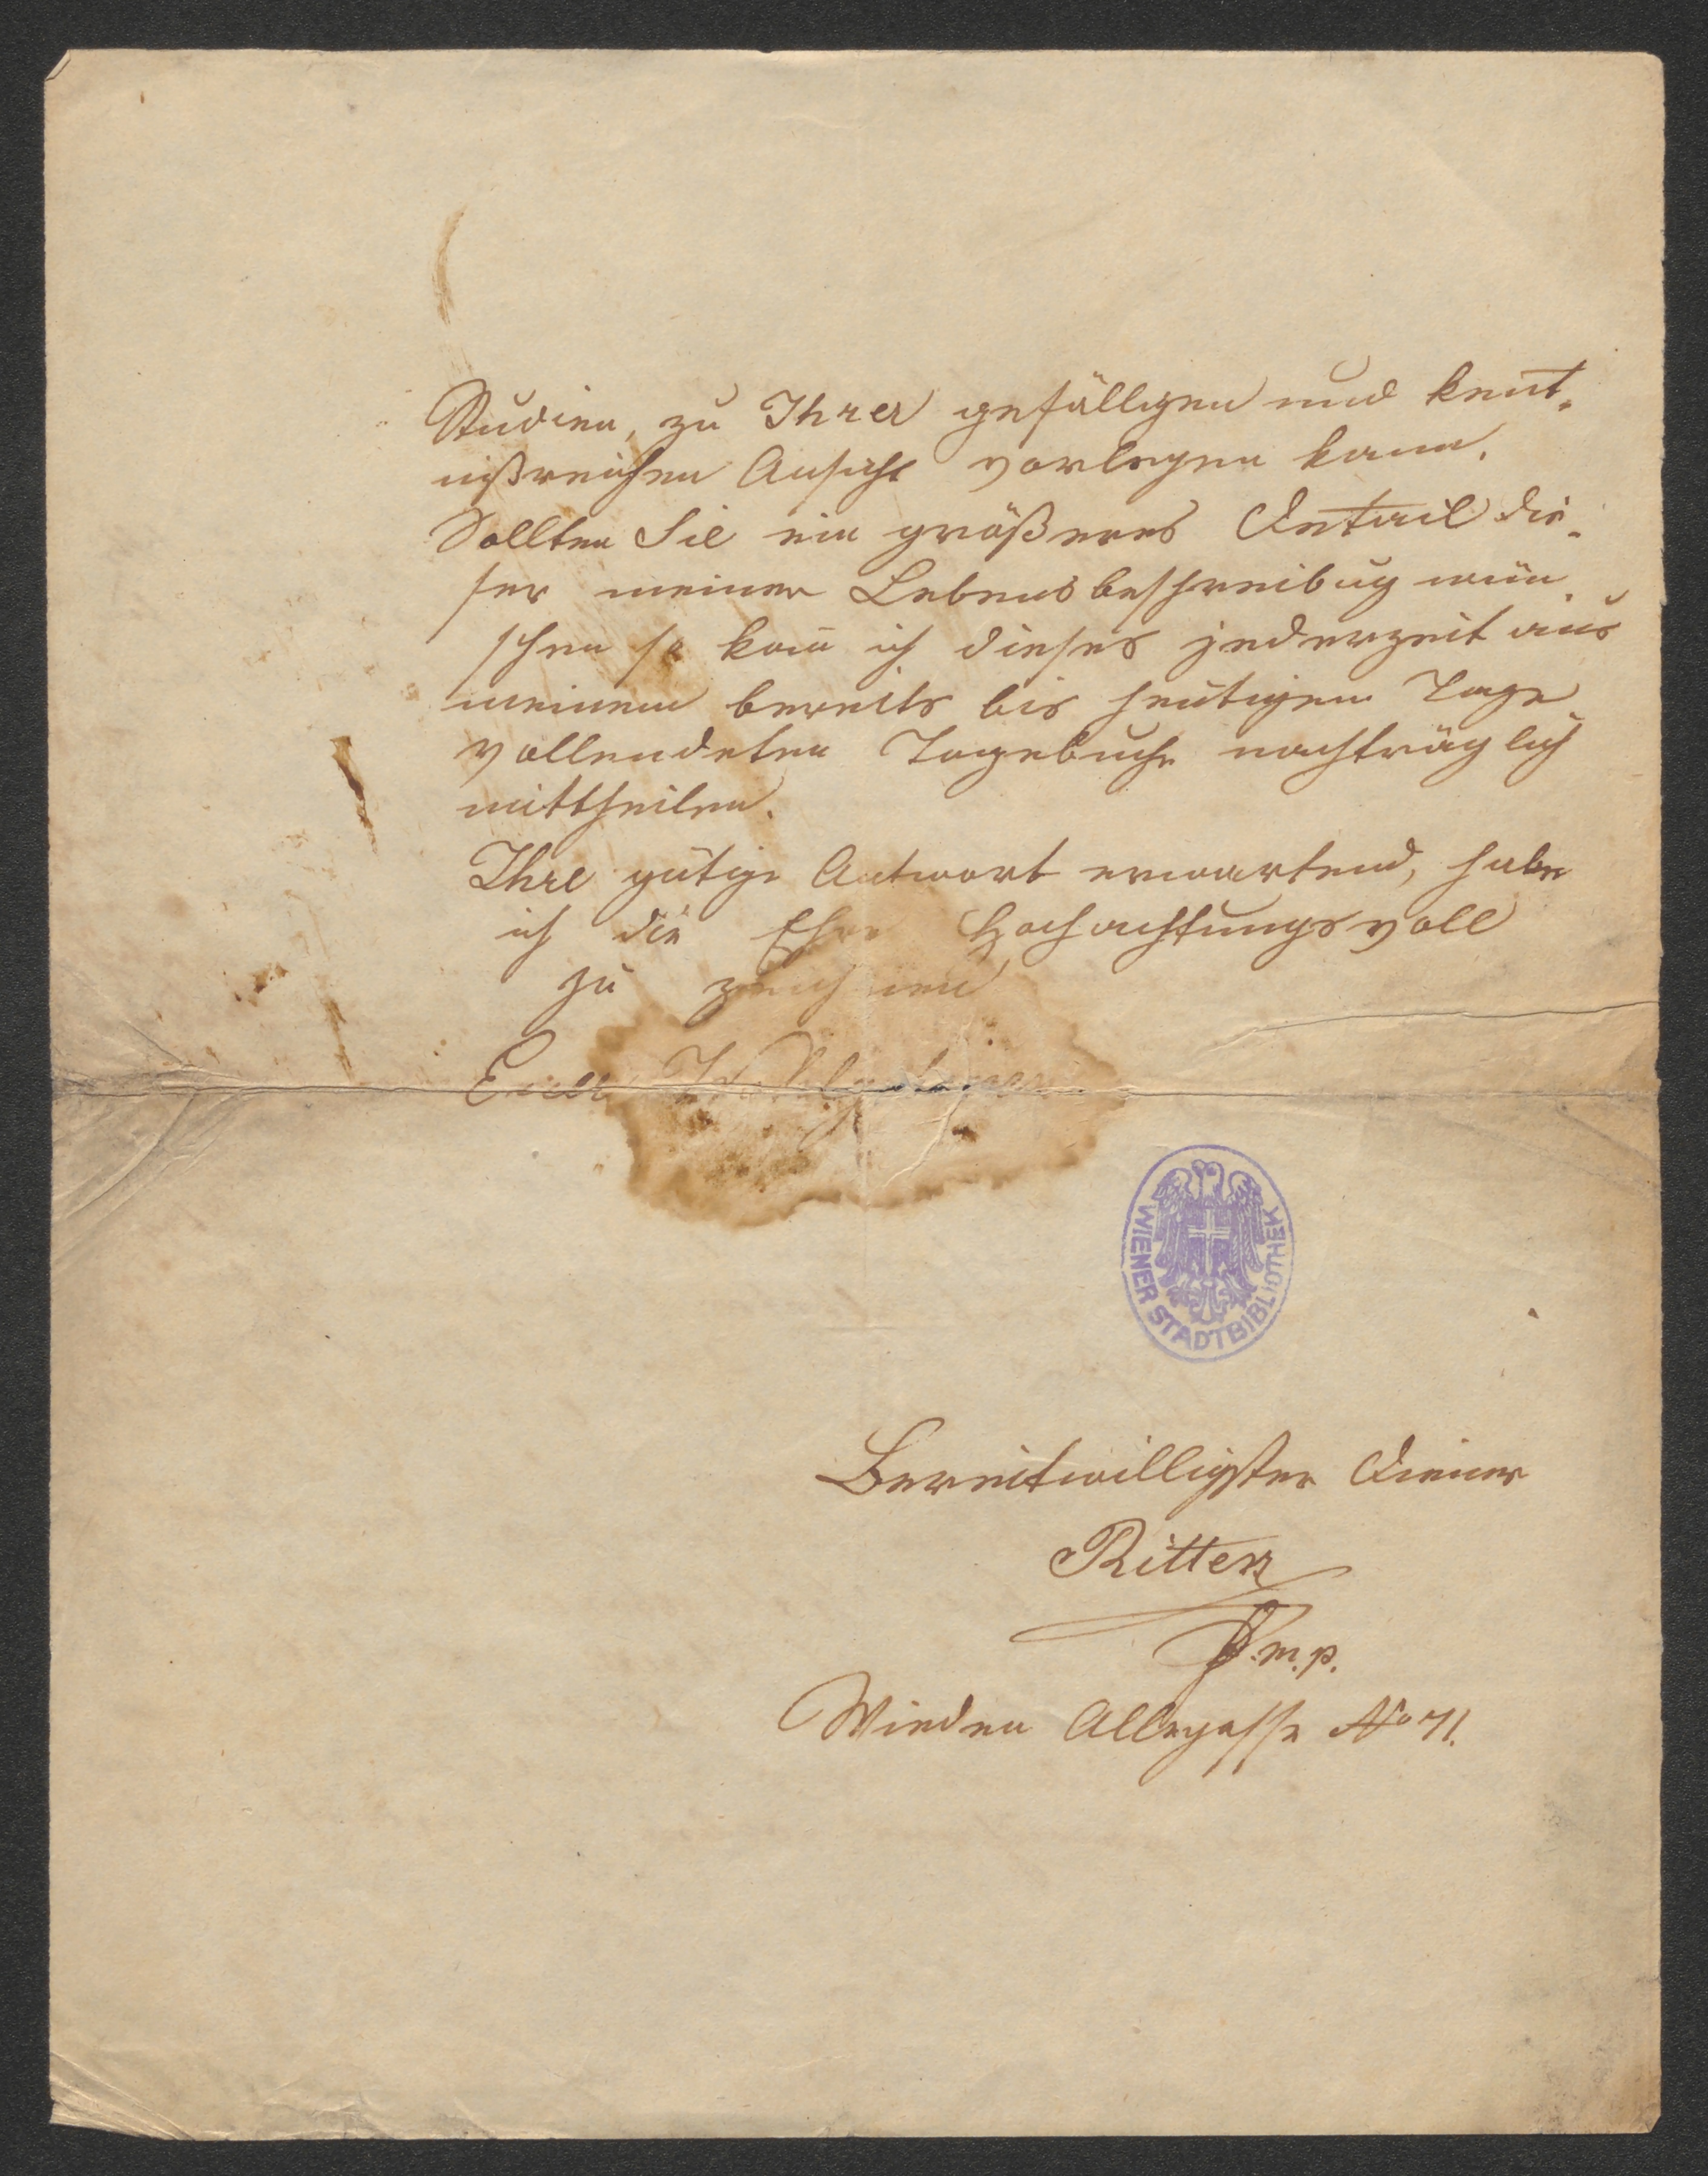 Studien, zu Ihrer gefälligen und kent-
nißreichen Ansicht vorlegen kann.
Sollten Sie ein größeres Detail die-
ser meiner Lebensbeschreibug wün-
schen so kan̄ ich dieses jederzeit aus
meinem bereits bis heutigem Tage
vollendeten Tagebuche nachträglich
mittheilen.
Ihre gütige Antwort erwartend, habe
ich die Ehre Hochachtungsvoll
zu zeichnen
Euer Wohlgeboren
WIENER STADTBIBLIOTHEK
Bereitwilligster Diener
Ritter
m.p.
Wieden Alleegasse No 71.